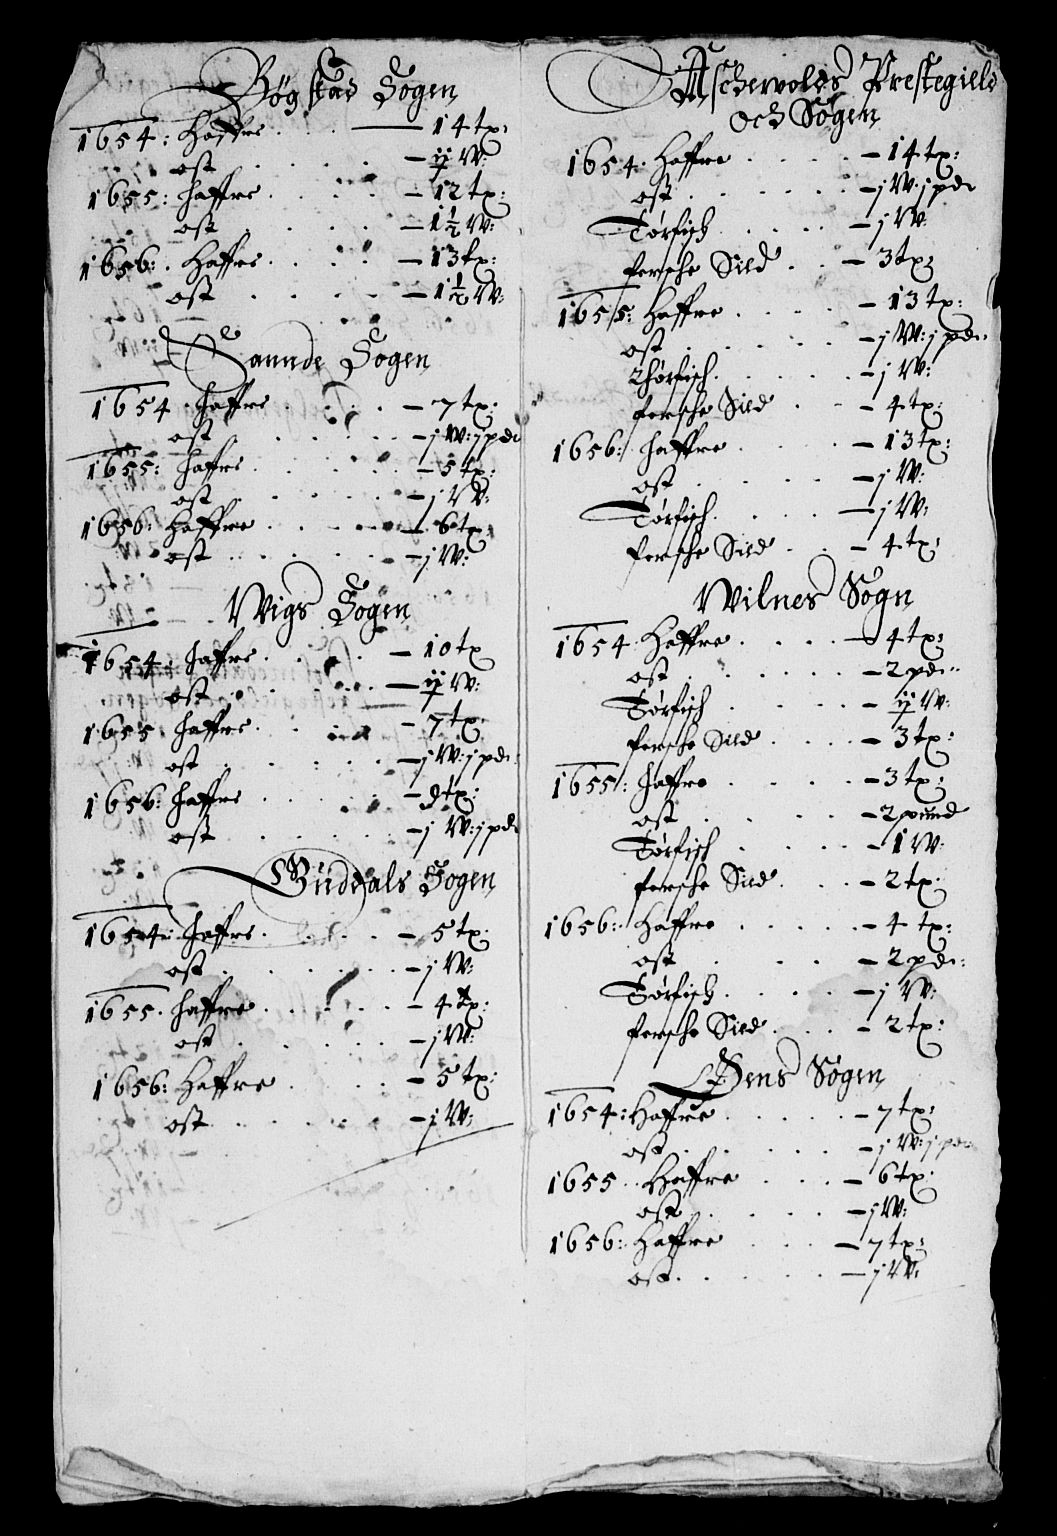 Bøgstad Sogen
1654: Haffre . . . — 14 tx:
ost . . . . — ij W:
1655: Haffre . . . — 12 tx:
ost . . . . — 1½ W:
1656: Haffre . . . — 13 tx:
ost . . . . — 1½ W:
Saunde Sogen
1654 Haffre . . . — 7 tx:
ost . . . . — j W: j pd:
1655: Haffre . . . — 5 tx:
ost . . . . — j W:
1656: Haffre . . . — 6 tx:
ost . . . . — j W:
Wigs Sogen
1654: Haffre . . . — 10 tx
ost . . . . — ij W:
1655 Haffre . . . — 7 tx:
ost . . . . — j W: j pd:
1656: Haffre . . . — 9 tx:
ost . . . . — j W: j pd:
Gudedals Sogen
1654: Haffre . . . — 5 tx:
ost . . . . — j W:
1655. Haffre . . . — 4 tx:
ost . . . . — j W:
1656: Haffre . . . — 5 tx:
ost . . . . — j W:
Aschevolds Prestegield
och Sogen
1654. Haffre . . . — 14 tx:
ost . . . . — j W. j pd:
Tørfisch . . . . — j W.
fersche Sild . . — 3 tx:
1655: Haffre . . . — 13 tx:
ost . . . . — j W: j pd:
Thørfisch . . . . — j W:
fersche Sild . . — 4 tx:
1656: Haffre . . . — 13 tx:
ost . . . . — j W:
Tørfisch . . . . — j W:
fersche Sild . . — 4 tx:
Wilnes Sogn
1654 Haffre . . . — 4 tx:
ost . . . . — 2 pd:
Tørfisch . . . . — ij W:
fersche Sild . . . — 3 tx:
1655: Haffre . . . — 3 tx:
ost . . . . — 2 pund
Tørfisch . . . . — 1 W:
fersche Sild . . . — 2 tx:
1656: Haffre . . . — 4 tx:
ost . . . . — 2 pd:
Tørfisch . . . . — j W:
fersche Sild . . . — 2 tx:
Øens Sogen
1654: Haffre . . . — 7 tx:
ost . . . . — j W: j pd:
1655 Haffre . . . — 6 tx:
ost . . . . — j W:
1656: Haffre . . . — 7 tx:
ost . . . . — j W: